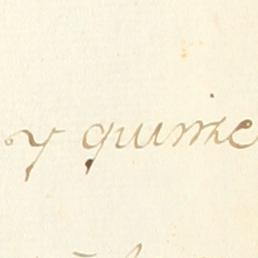 y quinze